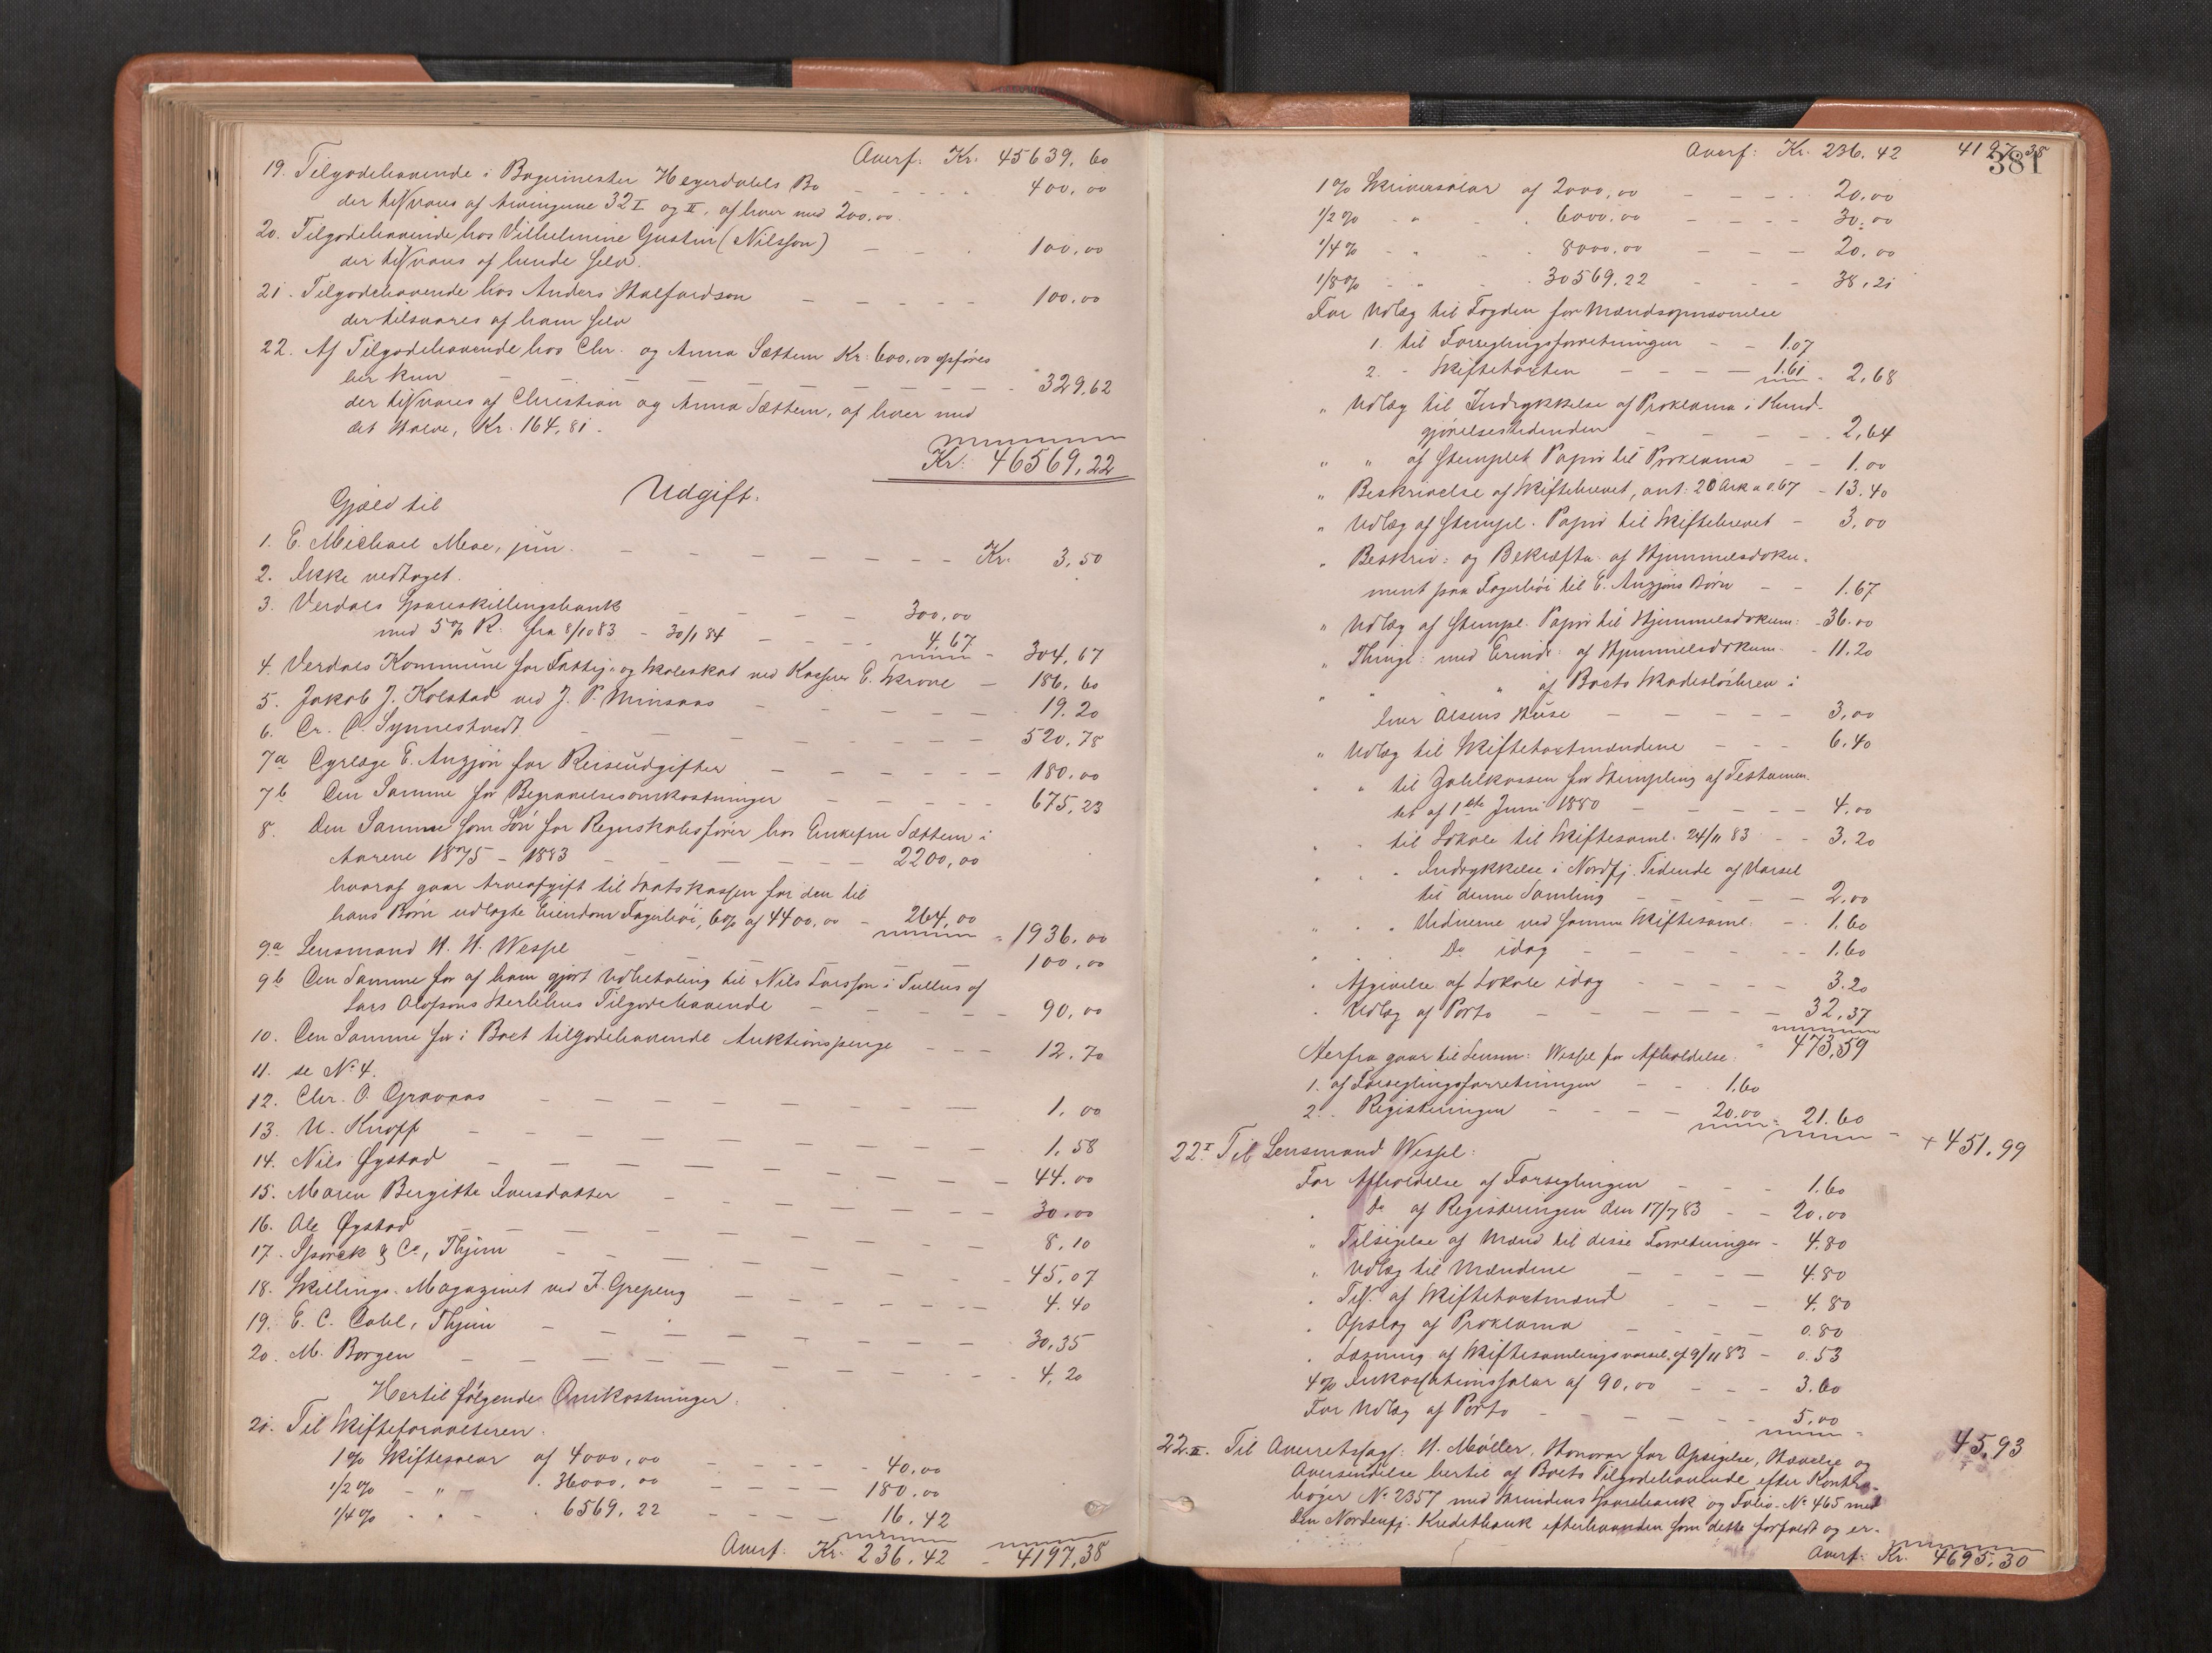 Overf: Kr. 45639,60
19. Tilgodehavende i Bagermester Hegerdahls Bo - - - - 400,00
der tilsvares af Arvingerne 32 I og II, af hver med 200,00.
20. Tilgodehavende hos Vilhelmine Gustin (Nilsson) - - - 100,00
der tilsvares af hende selv.
21. Tilgodehavende hos Anders Halfvardson - - - - - 100,00
der tilsvares af ham selv
22. Af Tilgodehavende hos Chr. og Anna Sættem Kr. 600,00 opføres
her kun - - - - - - - - - - 329,62
der tilsvares af Christian og Anna Sættem, af hver med
det Halve, Kr. 164,81.
Kr. 46569,22
Udgift.
Gjæld til
1. E. Michael Moe, jun. - - - - - - - Kr. 3,50
2. Ikke vedtaget.
3. Verdals Spareskillingsbank - - - - 300,00
med 5% R. fra 8/10 83 - 30/1 84 - - - 4,67 - 304,67
4. Verdals Kommune for Fattig- og Skoleskat ved Kasserer E. Skrove - 186,60
5. Jakob J. Kolstad ved J. P. Minsaas - - - - - 19.20
6. Dr. C. Synnestvedt - - - - - - - 520,78
7a Dyrlæge E. Anzjøn for Reiseudgifter - - - - - - 180,00
7b Den Samme for Begravelsesomkostninger - - - - - 675,23
8. Den Samme som Løn for Regnskabsfører hos Enkefru Sættem i
Aarene 1875 - 1883 - - - - - - 2200,00
hvoraf gaar Arveafgift til Statskassen for den til
hans Børn udlagte Eiendom Fagerhøi, 6% af 4400,00 - 264,00 - 1936,00
9a Lensmand H. H. Wessel - - - - - - 100,00
9b Den Samme for af ham gjort Udbetaling til Nils Larsson i Tullus af
Lars Olofsons Sterbhus Tilgodehavende - - - - - 90,00
10. Den Samme for i Boet tilgodehavende Auktionspenge - - - 12.70
11. se No 4.
12. Chr. O. Gravaas - - - - - - - - - 1,00
13. U. Knoff - - - - - - - - - 1,58
14. Nils Øgstad - - - - - - - - 44.00
15. Maren Bergitte Iversdatter - - - - - - - 30,00
16. Ole Øgstad - - - - - - - - 8,10
17. Sporck & Co, Thjem - - - - - - - - 45,07
18. Skillings-Magazinet ved F. Grepeng - - - - - - 4.40
19. E. C. Dahl, Thjem - - - - - - - 30,35
20. M. Borgen - - - - - - - - - 4,20
Hertil følgende Omkostninger.
21. Til Skifteforvalteren.
1% Skiftesalær af 4000,00 - - - - - 40,00
1/2% - " - 36000,00 - - - - - 180,00
1/4% - " - 6569,22 - - - - 16,42
Overf. Kr. 236,42 - 4197,38
Overf: Kr. 236,42 4197,38
381
1% Skriversalær af 2000,00 - - - - 20,00
1/2% - " - 6000,00 - - - - 30,00
1/4% - " - 8000,00 - - - 20,00
1/8% - " - 30569,22 - - - 38,21
For Udlæg til Fogden for Mændsopnævnelse
1. til Forseglingsforretningen - - 1.07
2. - Skifteboeten - - - - 1.61 - 2,68
" Udlæg til Indrykkelse af Proklama i Kund-
gjørelsestidenden - - - - - 2,64
" " af stemplet Papir til Proklama - - 1.00
" Beskrivelse af Skiftebrevet, ant: 20 Ark a 0.67 - 13.40
" Udlæg af stempl. Papir til Skiftebrevet - 3,00
" Beskriv: og Bekræfts. af Hjemmelsdoku-
ment paa Fagerhøi til E. Anzjøns Børn - - 1.67
" Udlæg af stempl. Papir til Hjemmelsdokum: - 36.00
" Thingl: med Erindr: af Hjemmelsdokum. - 11.20
" " " af Boets Skadesløsbrev i
Iver Olsens Huse - - - - - 3,00
" Udlæg til Skiftetaxtmændene - - - 6.40
" " til Zahlkassen for Stempling af Testamen-
tet af 1ste Juni 1880 - - - - - 4.00
" - til Lokale til Skiftesaml. 24/11 83 - - 3.20
" " - Indrykkelse i Nordfj. Tidende af Varsel
til denne Samling - - - - - 2,00
" " Vidnerne ved samme Skiftesaml. - - 1.60
" " Do idag - - - - - - 1.60
" Afgivelse af Lokale idag - - - - - 3.20
" Udlæg af Porto - - - - - - 32,37
473,59
Herfra gaar til Lensm: Wessel for Afholdelse:
1. af Forseglingsforretningen - - 1.60
2. - Registreringen - - - - 20.00 - 21.60 - + 451.99
22 I. Til Lensmand Wessel:
For Afholdelse af Forseglingen - - - 1.60
" Do af Registreringen den 17/7 83 - - 20,00
" Tilsigelse af Mænd til disse Forretninger - 4.80
" Udlæg til Mændene - - - - 4.80
" Tils. af Skiftetaxtmænd - - - 4,80
" Opslag af Proklama - - - - 0.80
" Læsning af Skiftesamlingsvarsel af 9/11 83 - 0.53
4% Inkassationssalær af 90,00 - - - 3.60
For Udlæg af Porto - - - - - - 5,00 - 45.93
22 II. Til Overretssagf: H. Møller, Honorar for Opsigelse, Hævelse og
Oversendelse hertil af Boets Tilgodehavende efter Kontra-
bøger No 2357 med Strindens Sparebank og Folio No 465 med
Den Nordenfj. Kreditbank efterhaanden som dette forfaldt og er-
Overf: Kr. 4695,30